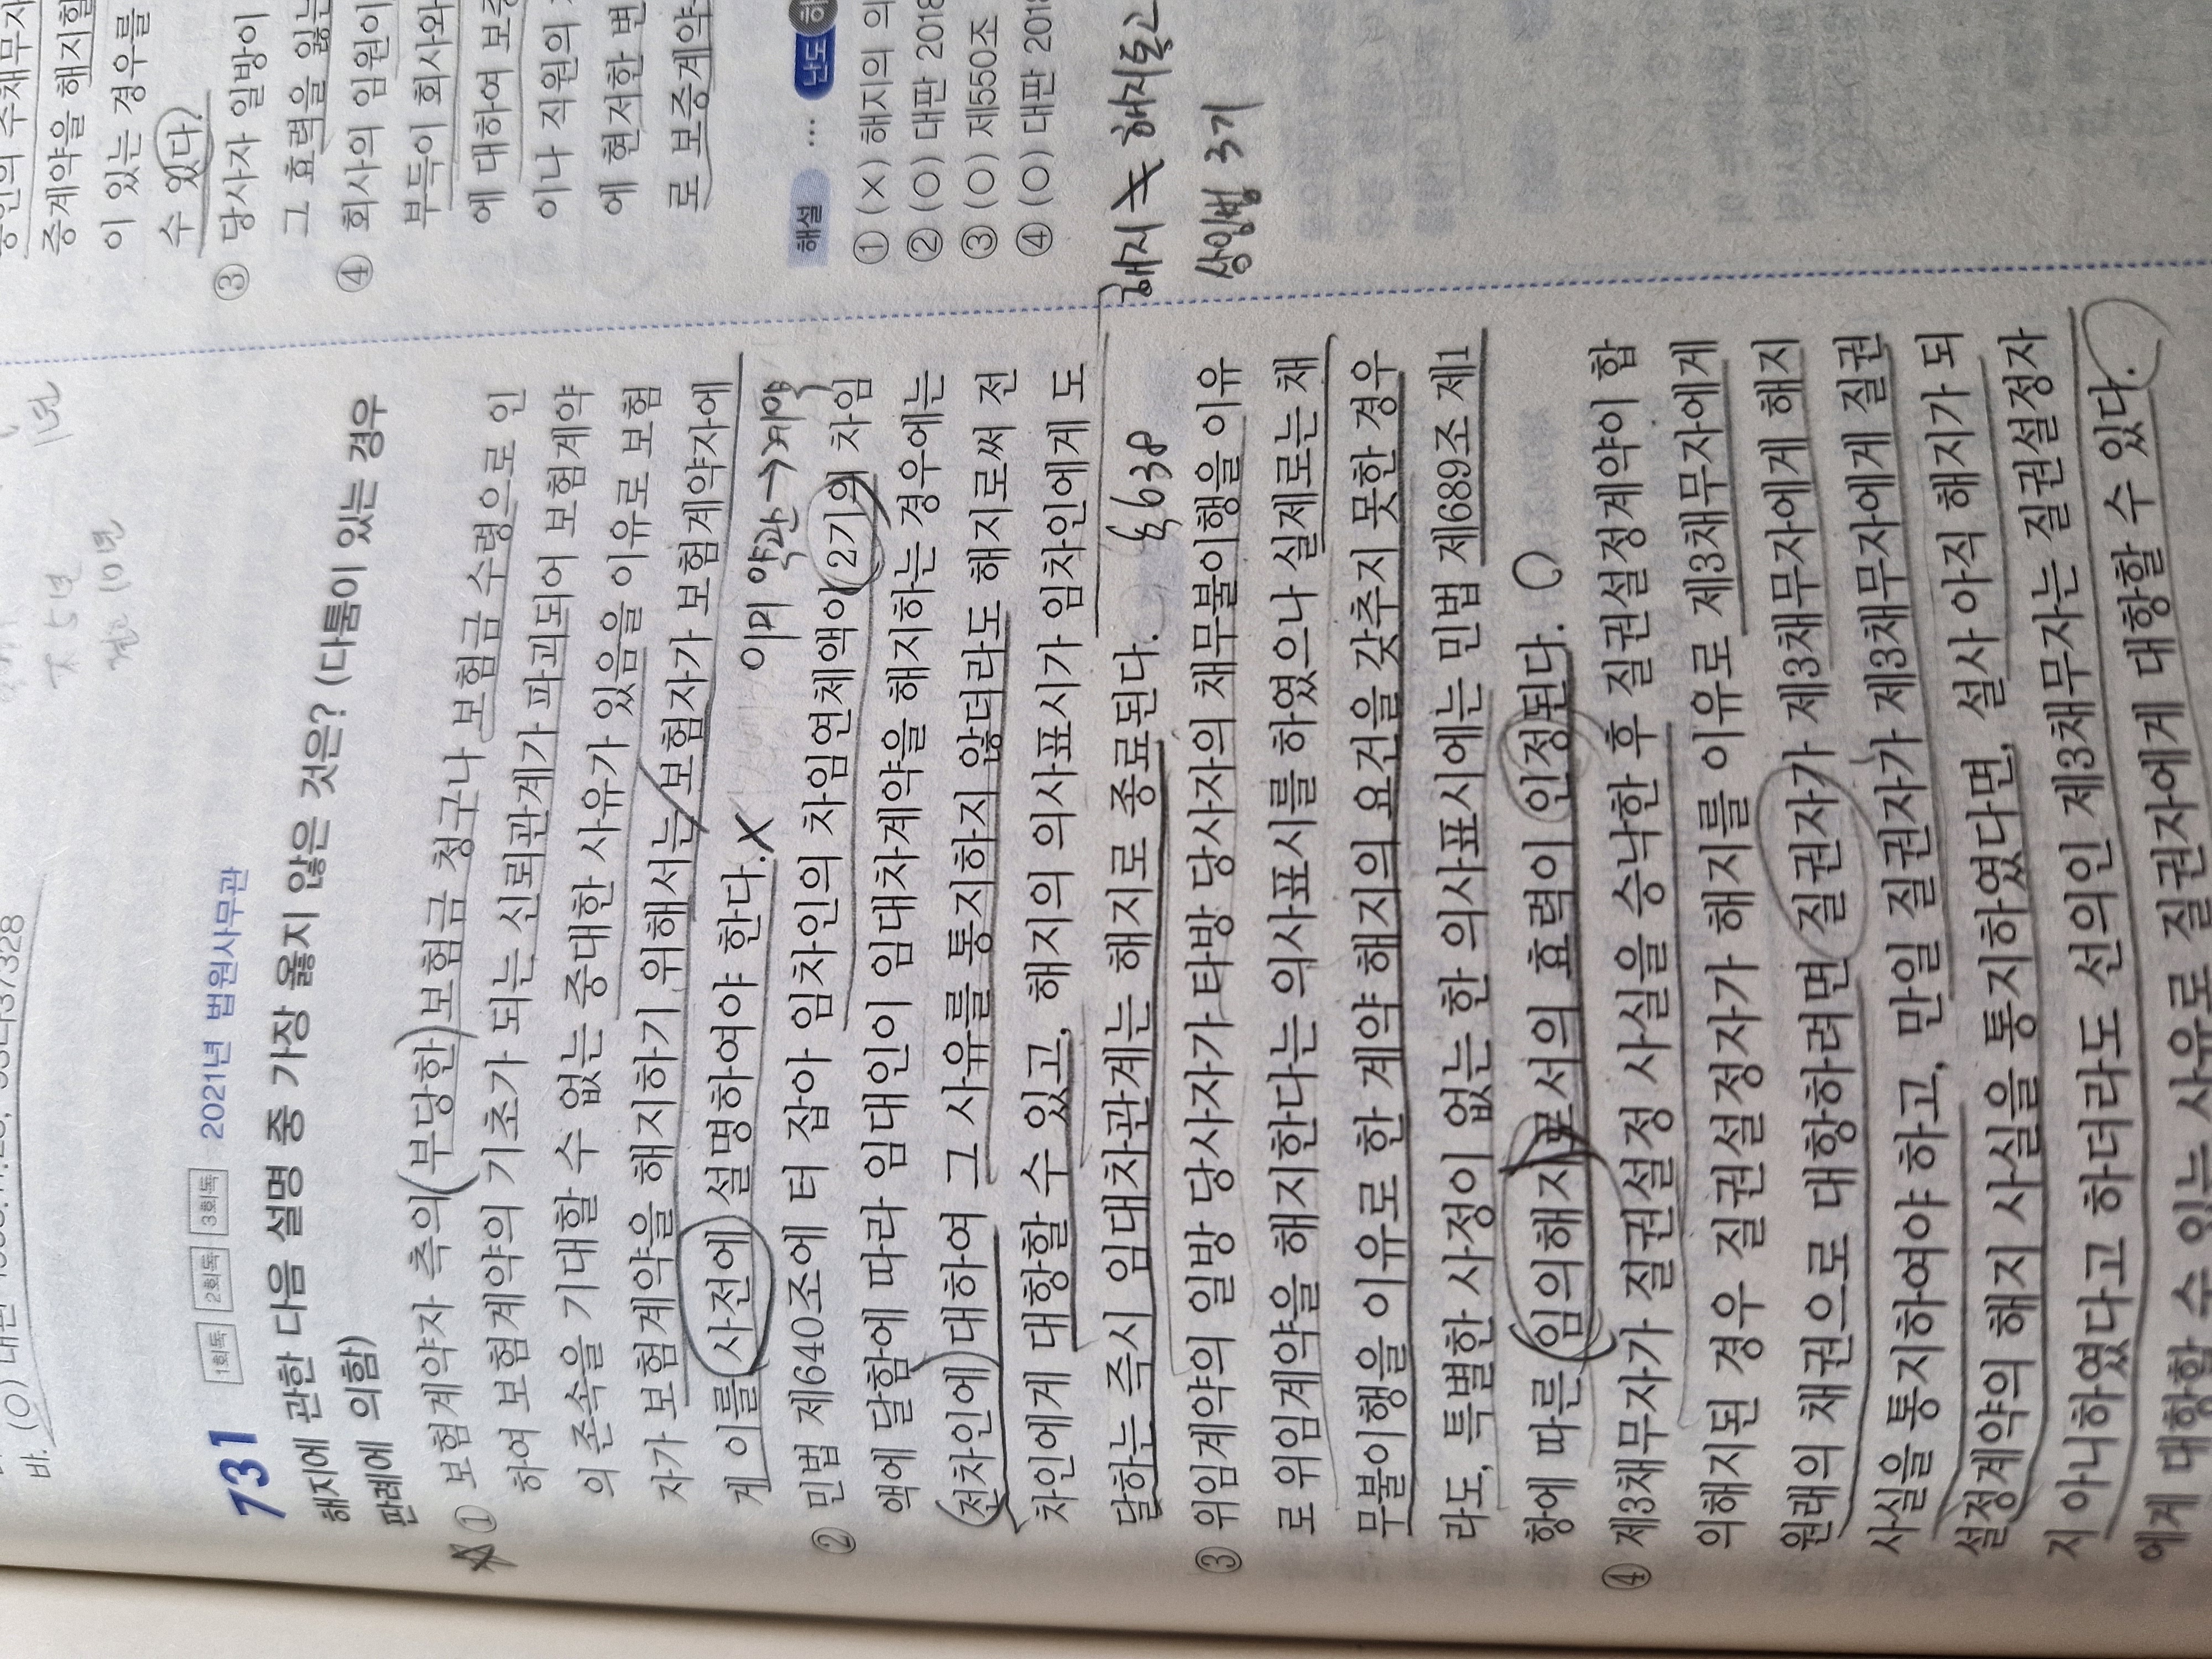 바. (O) 대판
1년
도 5년
10년
731 1회독 2회독 3회독 2021년 법원사무관
해지에 관한 다음 설명 중 가장 옳지 않은 것은? (다툼이 있는 경우
판례에 의함)
① 보험계약자 측의 부당한 보험금 청구나 보험금 수령으로 인
하여 보험계약의 기초가 되는 신뢰관계가 파괴되어 보험계약
의 존속을 기대할 수 없는 중대한 사유가 있음을 이유로 보험
자가 보험계약을 해지하기 위해서는 보험자가 보험계약자에
게 이를 사전에 설명하여야 한다. X
이미 약관→계약
② 민법 제640조에 터 잡아 임차인의 차임연체액이 2기의 차임
액에 달함에 따라 임대인이 임대차계약을 해지하는 경우에는
전차인에 대하여 그 사유를 통지하지 않더라도 해지로써 전
차인에게 대항할 수 있고, 해지의 의사표시가 임차인에게 도
달하는 즉시 임대차관계는 해지로 종료된다.
§638
③ 위임계약의 일방 당사자가 타방 당사자의 채무불이행을 이유
로 위임계약을 해지한다는 의사표시를 하였으나 실제로는 채
무불이행을 이유로 한 계약 해지의 요건을 갖추지 못한 경우
라도, 특별한 사정이 없는 한 의사표시에는 민법 제689조 제1
항에 따른 임의해지로서의 효력이 인정된다. O
④ 제3채무자가 질권설정 사실을 승낙한 후 질권설정계약이 합
의해지된 경우 질권설정자가 해지를 이유로 제3채무자에게
원래의 채권으로 대항하려면 질권자가 제3채무자에게 해지
사실을 통지하여야 하고, 만일 질권자가 제3채무자에게 질권
설정계약의 해지 사실을 통지하였다면, 설사 아직 해지가 되
지 아니하였다고 하더라도 선의인 제3채무자는 질권설정자
에게 대항할 수 있는 사유로 질권자에게 대항할 수 있다.
증계약을 해지할
이 있는 경우를
수 있다?
③ 당사자 일방이
그 효력을 잃는
④ 회사의 임원이
부득이 회사와
에 대하여 보증
이나 직원의
에 현저한 변
로 보증계약
해설 … 난도 하
① (X) 해지의 의
② (O) 대판 2018
③ (O) 제550조
④ (O) 대판 2018
해지 ≠ 해지통고
상임법 3기